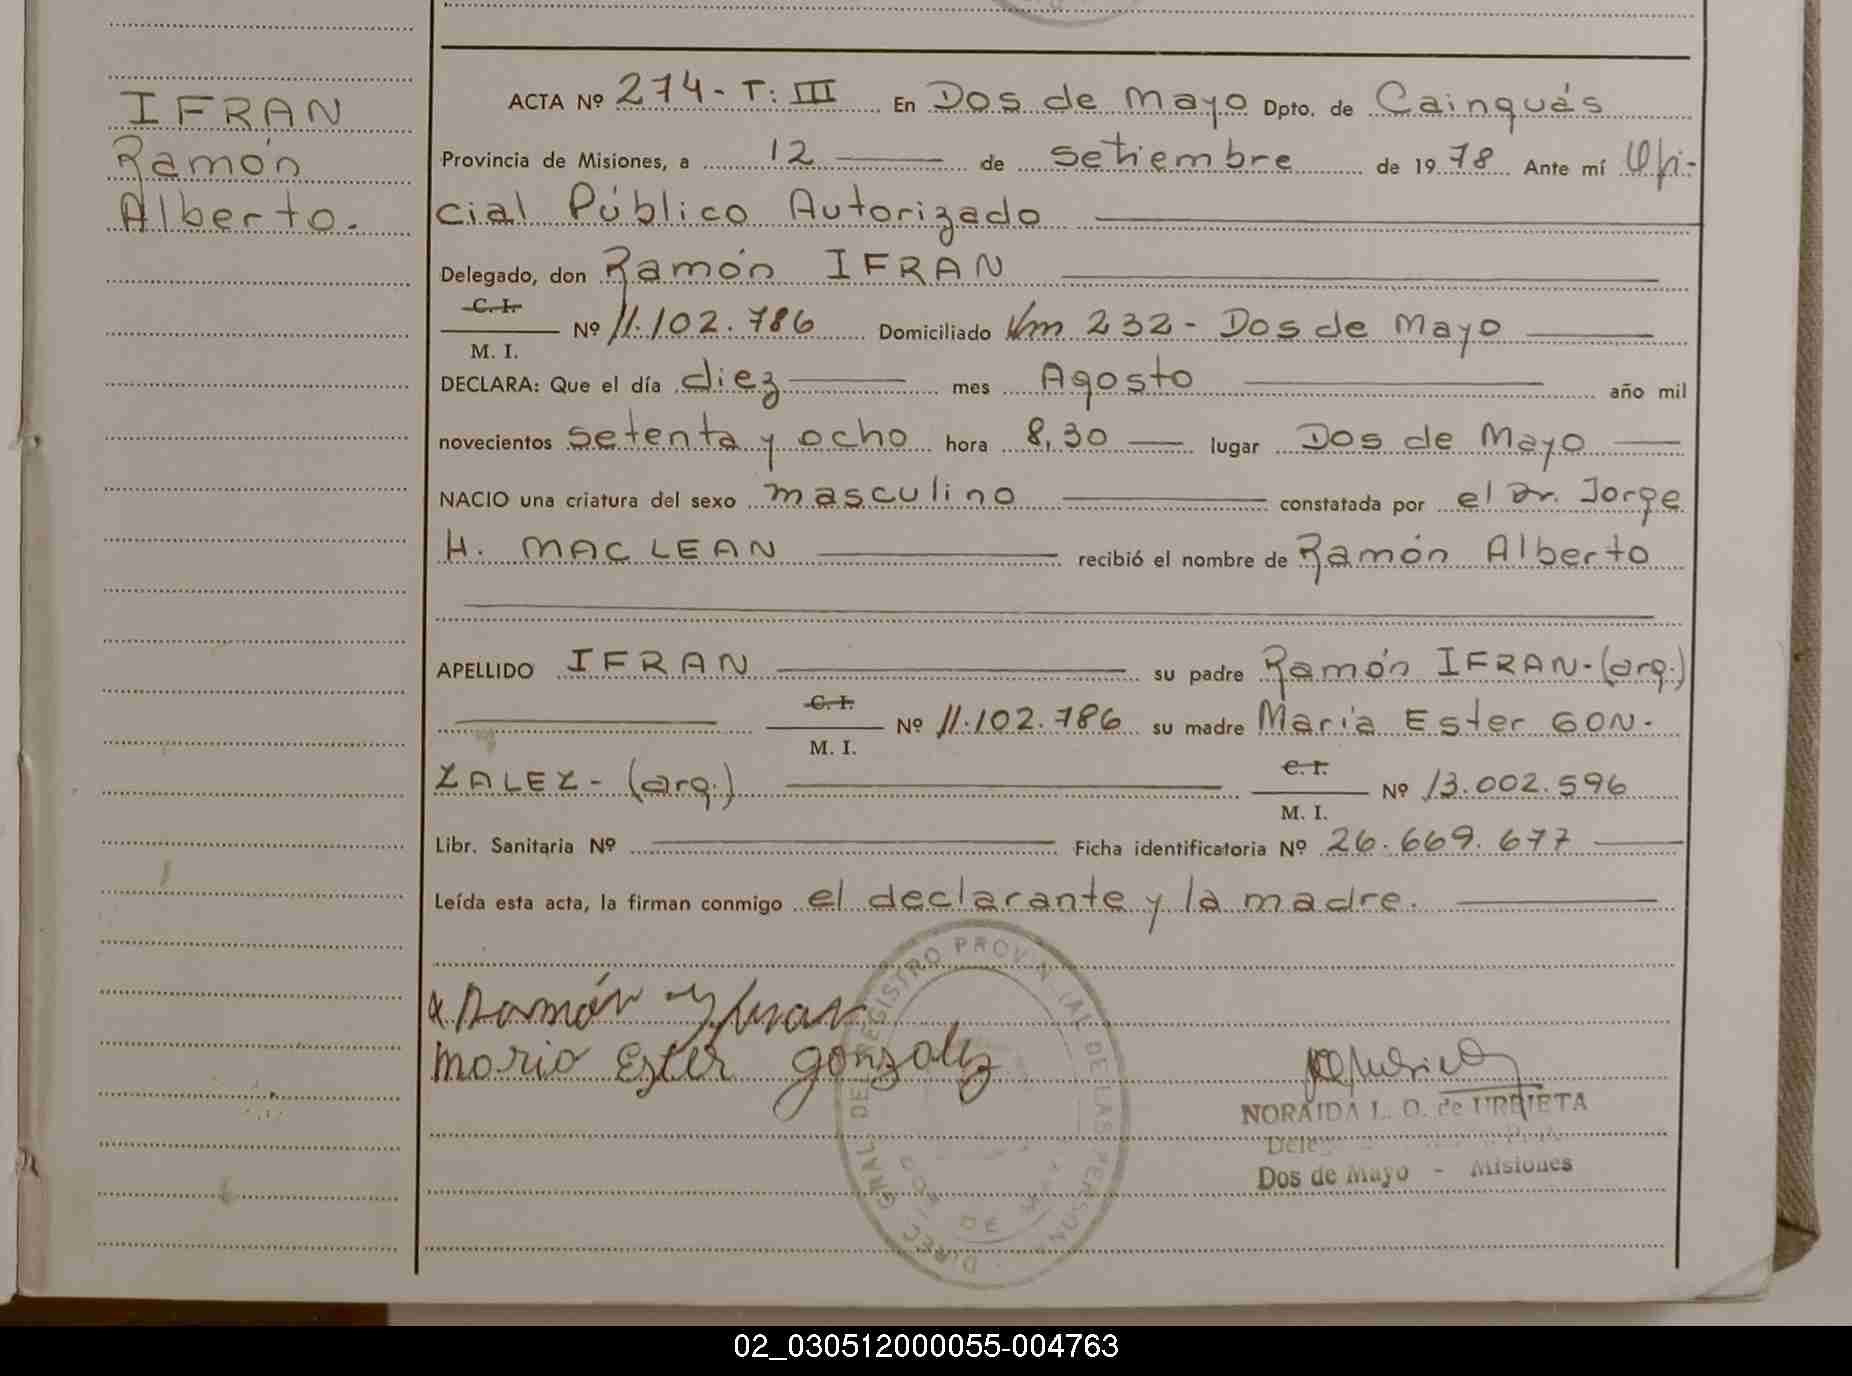 IFRAN
Ramón
Alberto.
ACTA Nº 274-T: III En Dos de Mayo Dpto. de Cainguás
Provincia de Misiones, a 12 de Setiembre de 1978 Ante mí Ofi-
cial Público Autorizado
Delegado, don Ramón IFRAN
C. I.
M. I. Nº 11.102.786 Domiciliado Km 232- Dos de Mayo
DECLARA: Que el día diez mes Agosto año mil
novecientos setenta y ocho hora 8,30 lugar Dos de Mayo
NACIO una criatura del sexo masculino constatada por el Dr. Jorge
H. MAC LEAN recibió el nombre de Ramón Alberto
APELLIDO IFRAN su padre Ramón IFRAN-(arg.)
C. I.
M. I. Nº 11.102.786 su madre María Ester GON-
ZALEZ- (arg.) C. I.
M. I. Nº 13.002.596
Libr. Sanitaria Nº Ficha identificatoria Nº 26.669.677
Leída esta acta, la firman conmigo el declarante y la madre.
x Ramón Yfran
Maria Ester gonzalez
NORAIDA L. O. de URBIETA
Dos de Mayo - Misiones
DIREC. GRAL. DEL REGISTRO PROVINCIAL DE LAS PERSONAS
DOS DE MAYO
02_030512000055-004763